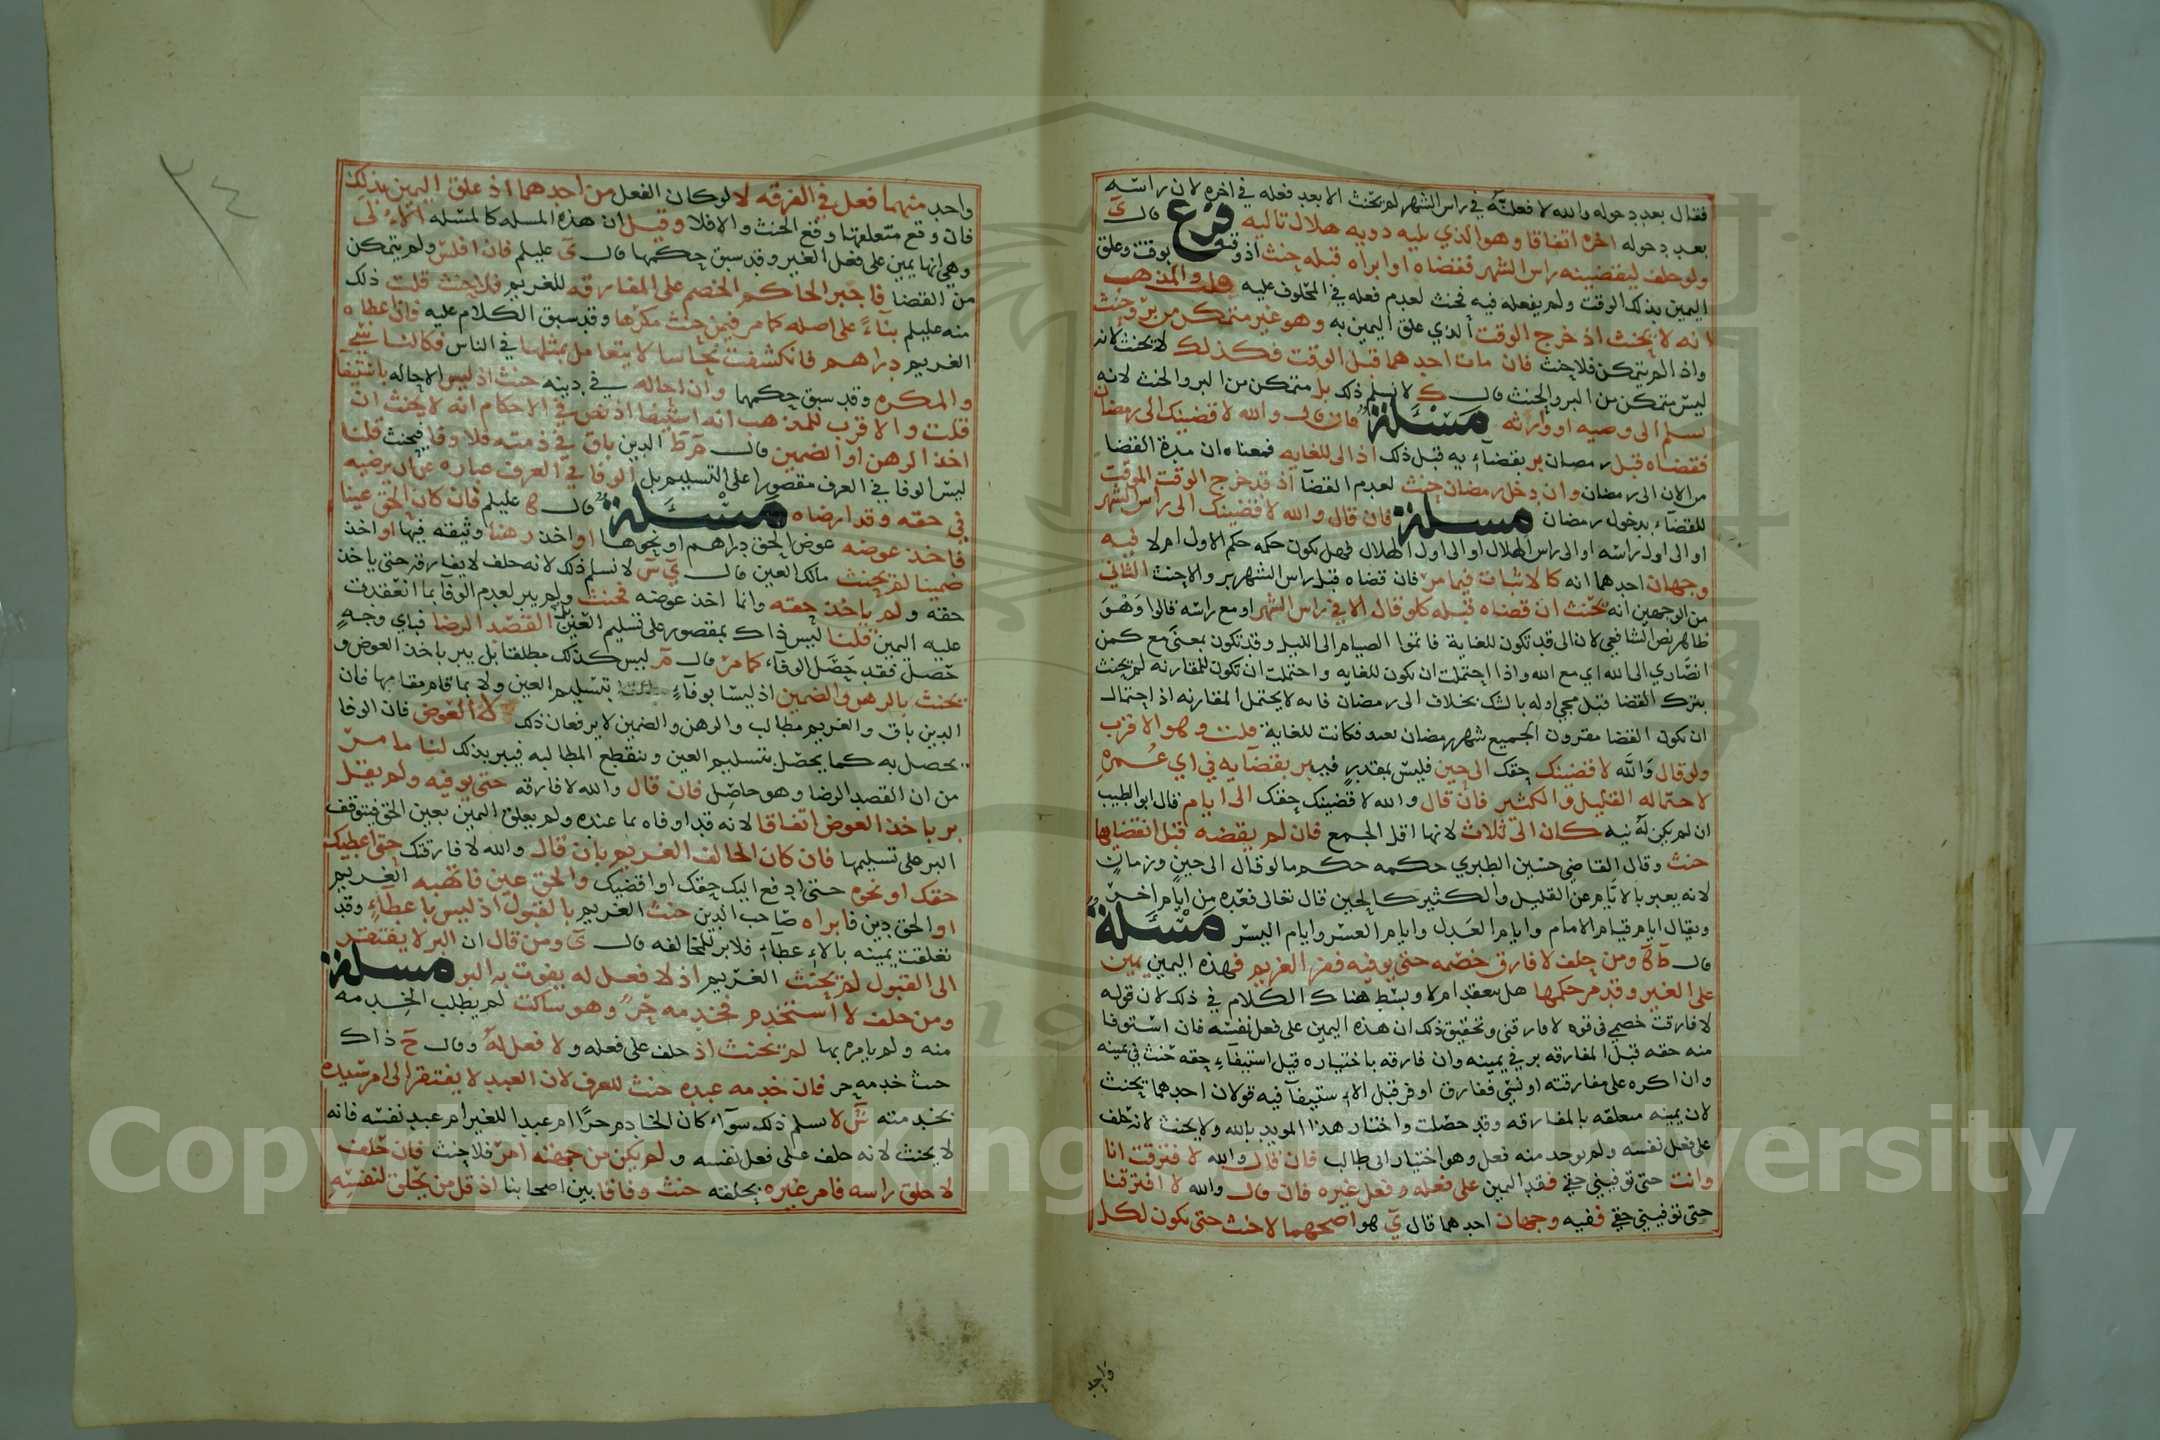 فقال بعد دخوله والله لا فعلته في راس الشهر لم يحنث الا بعد فعله في اخره لان راسه
بعد دخوله اخره اتفاقا وهو الذي يليه دويه هلال تاليه فرع قال ى
ولو حلف ليقضينه راس الشهر فقضاه او ابراه قبله حنث اذ وقته بوقت وعلق
اليمين بذلك الوقت ولم يفعله فيه فحنث لعدم فعله في المحلوف عليه قلت والمذهب
انه لا يحنث اذ خرج الوقت الذي علق اليمين به وهو غير متمكن من بر وحنث
واذا لم يتمكن فلا حنث فان مات احدهما قبل الوقت فكذلك لا يحنث لانه
ليس متمكن من البر والحنث قال ك لا نسلم ذلك بل متمكن من البر والحنث لانه
يسلم الى وصيه او وارثه مسئلة فان قال والله لا قضينك الى رمضان
فقضاه قبل رمضان بر بقضآءيه قبل ذلك اذ الى للغايه فمعناه ان مدة القضا
من الان الى رمضان وان دخل رمضان حنث لعدم القضآ اذ قد خرج الوقت الموقت
للقضآء بدخول رمضان مسئلة فان قال والله لا قضينك الى راس الشهر
او الى اول راسه او الى راس الهلال او الى اول الهلال فهل يكون حكمه حكم الاول ام لا فيه
وجهان احدهما انه كالاثبات فيما مر فان قضاه قبل راس الشهر بر والا حنث الثاني
من الوجهين انه يحنث ان قضاه قبله كلو قال الا في راس الشهر او مع راسه قالوا وهو
ظاهر نص الشافعي لان الى قد تكون للغاية فاتموا الصيام الى الليل وقد تكون بمعنى مع كمن
انصاري الى الله اي مع الله واذا احتملت ان تكون للغايه واحتملت ان تكون للمقارنه لم يحنث
بترك القضا قبل مجي اوله بالشك بخلاف الى رمضان فانه لا يحتمل المقارنه اذ احتمال
ان يكون القضا مقرون الجميع شهر رمضان بعيد فكانت للغاية قلت وهو الاقرب
ولو قال والله لا قضينك حقك الى حين فليس بمقدر فيبر بقضآيه في اي عمره
لاحتماله القليل والكثير فان قال والله لا قضينك حقك الى ايام قال ابو الطيب
ان لم يكن له نيه كان الى ثلاث لانها اقل الجمع فان لم يقضه قبل انقضايها
حنث وقال القاضي حسين الطبري حكمه حكم مالو قال الى حين وزمان
لانه يعبر بالايام عن القليل والكثير كالحين قال تعالى فعده من ايام اخر
ويقال ايام قيام الامام وايام العدل وايام العسر وايام اليسر مسئلة
قال ومن حلف لا فارق خصمه حتى يوفيه ففر الغريم فهذه اليمين يمين
على الغير وقد مر حكمها هل ينعقد ام لا وبسط هناك الكلام في ذلك لان قوله
لا فارقت خصمي في قوه لا فارقني وتحقيق ذلك ان هذه اليمين على فعل نفسه فان استوفا
منه حقه قبل المفارقه بر في يمينه وان فارقه باختياره قبل استيفآء حقه حنث في يمينه
وان اكره على مفارقته او نسي ففارق او فر قبل الاستيفآ فيه قولان احدهما يحنث
لان يمينه متعلقه بالمفارقه وقد حصلت واختار هذا المويد بالله ولا يحنث لانه حلف
على فعل نفسه ولم يوجد منه فعل وهو اختيار ابي طالب فان قال والله لا فترقت انا
وانت حتى توفيني حقي فقد اليمين على فعله وفعل غيره فان قال والله لا افترقنا
حتى توفيني حقي ففيه وجهان احدهما قال ى هو اصحهما لا حنث حتى يكون لكل
واحد
واحد منهما فعل في الفرقه لا لو كان الفعل من احدهما اذ علق اليمين بذلك
فان وقع متعلقها وقع الحنث والا فلا وقيل ان هذه المسله كالمسله الاولى
وهي انها يمين على فعل الغير وقد سبق حكمها قال ى عليلم فان افلس ولم يتمكن
من القضا فاجبر الحاكم الخصم على المفارقه للغريم فلا حنث قلت ذلك
منه عليلم بنآءً على اصله كما مر فيمن حنث مكرها وقد سبق الكلام عليه فان اعطاه
الغريم دراهم فانكشفت نحاسا لا يتعامل بمثلها في الناس فكالناسي
والمكره وقد سبق حكمها وان احاله في دينه حنث اذ ليس الاحاله باستيفآ
قلت والاقرب للمذهب انه استيفا اذ نص في الاحكام انه لا يحنث ان
اخذ الرهن او الضمين قال الدين باق في ذمته فلا وفا فيحنث قلنا
ليس الوفا في العرف مقصورا على التسليم بل الوفا في العرف عباره عن ان يرضيه
في حقه وقد ارضاه مسئلة قال عليلم فان كان الحق عينا
فاخذ عوضه عوض الحق دراهم او نحوها او اخذ رهنا وثيقه فيها او اخذ
ضمينا لم يحنث مالك العين قال ى ش لا نسلم ذلك لانه حلف لا يفارقه حتى ياخذ
حقه ولم ياخذ حقه وانما اخذ عوضه فحنث ولم يبر لعدم الوفآ بما انعقدت
عليه اليمين قلنا ليس ذاك بمقصور على تسليم العين بل القصد الرضا فباي وجه
حصل فقد حصل الوفآء كما مر قال م ليس كذلك مطلقا بل يبر باخذ العوض و
يحنث بالرهن والضمين اذ ليسا بوفآء بتسليم العين ولا بما قام مقامها فان
الدين باق والغريم مطالب والرهن والضمين لا يرفعان ذلك لا العوض فان الوفا
يحصل به كما يحصل بتسليم العين وتنقطع المطالبه فيبر بذلك لنا ما مر
من ان القصد الرضا وهو حاصل فان قال والله لا فارقه حتى يوفيه ولم يقل
بر باخذ العوض اتفاقا لانه قد اوفاه بما عنده ولم يعلق اليمين بعين الحق فيتوقف
البر على تسليمها فان كان الحالف الغريم بان قال والله لا فارقتك حتى اعطيك
حقك او نحوه حتى ادفع اليك حقك او اقضيك والحق عين فاتهبه الغريم
او الحق دين فابراه صاحب الدين حنث الغريم بالقبول اذ ليس باعطآء وقد
تعلقت يمينه بالاعطآء فلا بر للمخالفه قال ى ومن قال ان البر لا يفتقر
الى القبول لم يحنث الغريم اذ لا فعل له يفوت به البر مسئلة
ومن حلف لا استخدم فخدمه حر وهو ساكت لم يطلب الخدمه
منه ولم يامره بها لم يحنث اذ حلف على فعله ولا فعل له وقال ح ذاك
حيث خدمه حر فان خدمه عبده حنث للعرف لان العبد لا يفتقر الى امر سيده
بخدمته ش لا نسلم ذلك سوآء كان الخادم حرا ام عبدا للغير ام عبد نفسه فانه
لا يحنث لانه حلف على فعل نفسه ولم يكن من جهته امر فلا حنث فان حلف
لا حلق راسه فامر غيره بحلقه حنث وفاقا بين اصحابنا اذ قل من يحلق لنفسه
٢٤
Copyright © King Saud University
1957